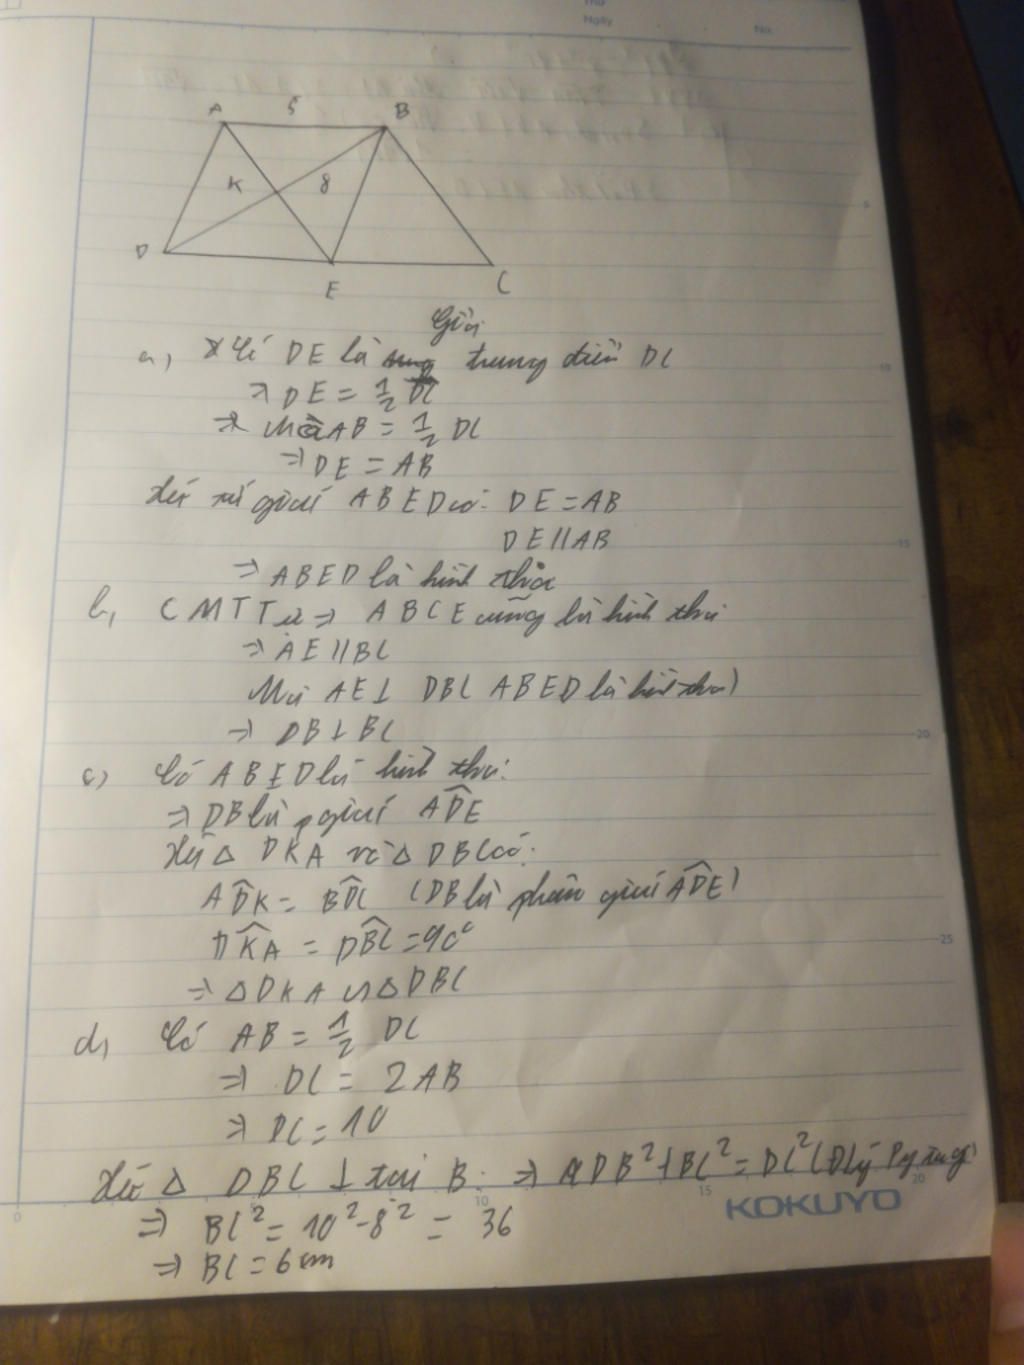 Thứ
Ngày
No.
A 5 B
K 8
D
E C
Giải
a, Có DE là trung điểm DC
=> DE = 1/2 DC
=> Mà AB = 1/2 DC
=> DE = AB
Xét tứ giác ABED có: DE = AB
DE // AB
=> ABED là hình thoi
b, CMTT => ABCE cũng là hình thoi
=> AE // BC
Mà AE ⊥ DB ( ABED là hình thoi)
=> DB ⊥ BC
c) Có ABED là hình thoi:
=> DB là p giác ADE
Xét Δ DKA và Δ DBC có:
ADK = BDC (DB là phân giác ADE)
DKA = DBC = 90°
=> Δ DKA ∽ Δ DBC
d, Có AB = 1/2 DC
=> DC = 2AB
=> DC = 10
Xét Δ DBC ⊥ tại B: => DB² + BC² = DC² (Đlý Pytago)
=> BC² = 10² - 8² = 36
=> BC = 6 cm
5
10
15
20
25
0
10
15
20
KOKUYO